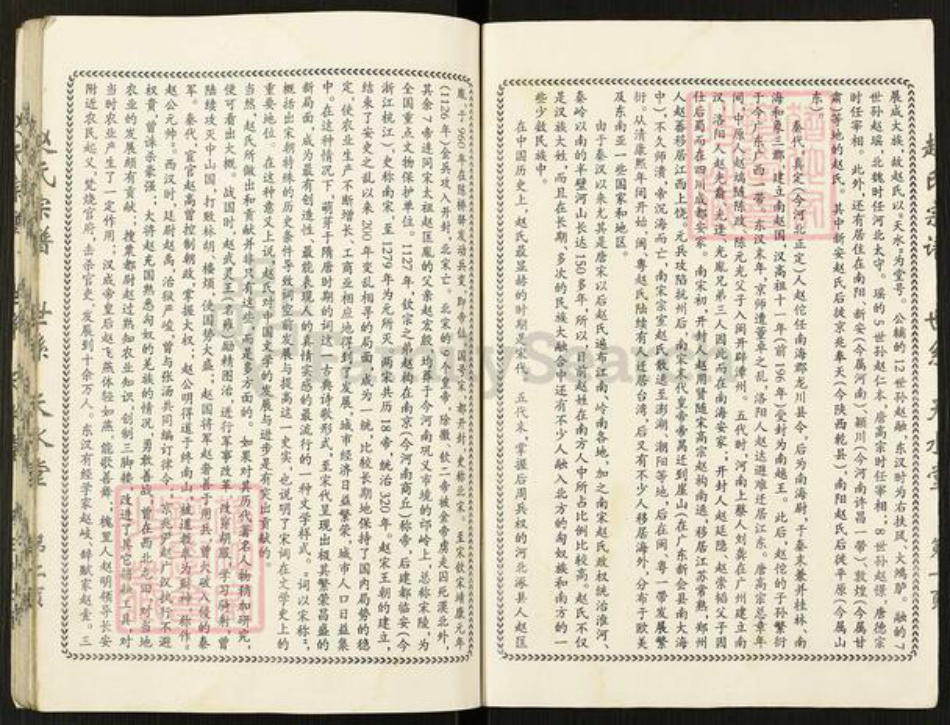 展成大族,故赵氏以“天水”为堂号。 公辅的12世孙赵融,东汉时为右扶风、大鸿胪。融的7
世孙赵瑶,北魏时任河北太守。 瑶的5世孙赵仁本,唐高宗时任宰相;8世孙赵憬,唐德宗
时任宰相。此外,还有居住在南阳、新安(今属河南)、颍川(今河南许昌一带)、敦煌(今属甘
肃)等地的赵氏。 其中新安赵氏后徙京兆奉天(今陕西乾县),南阳赵氏后徙平原(今属山
东)。
秦代,真定(今河北正定)人赵佗任南海郡龙川县令,后为南海尉,于秦末兼并桂林、南
海和象三郡,建立南越国,汉高祖十一年(前196年)受封为南越王。此后,赵佗的子孙繁衍
于今广东、广西一带。东汉末年,京师遭董卓之乱,洛阳人赵达避难迁居江东。唐高宗总章年
间,中原人赵端随陈政、陈元光父子入闽开辟漳州。五代时,河南上蔡人刘龚在广州建立南
汉,洛阳人赵光裔、光逢、光胤兄弟三人因此而在南海安家;开封人赵廷隐、赵崇韬父子因
仕后蜀而在四川成都安家。 南宋初,开封人赵用贤随宋高宗赵构南逃,移居江苏常熟;郑州
人赵蕃移居江西上饶。元兵攻陷杭州后,南宋末代皇帝赵昺迁到崖山(在广东新会县南大海
中),不久师溃,帝沉海而亡,南宋宗室赵氏散逃至澎湖、潮阳等地,后在闽、粤一带发展繁
衍。从清康熙年间开始,闽、粤赵氏陆续有人迁居台湾,后又有不少人移居海外,分布于欧美
及东南亚一些国家和地区。
由于秦汉以来尤其是唐宋以后赵氏遍布江南、岭南各地,加之南宋赵氏政权统治淮河、
秦岭以南的半壁河山长达150多年,所以,目前赵姓在南方人中所占比例较高。赵氏不仅
是汉族大姓,而且在长期、多次的民族大融合中还有不少人融入北方的匈奴族和南方的一
些少数民族中。
在中国历史上,赵氏最显赫的时期是宋代。 五代末,掌握后周兵权的河北涿县人赵匡
胤,于960年在陈桥驿发动兵变,即帝位,国号宋,都开封,史称北宋。至宋钦宗靖康元年
(1126年)金兵攻入开封,北宋亡。北宋的9个皇帝,除徽、钦二帝被金帝虏走囚死漠北外,
其余7帝连同宋太祖赵匡胤的父亲赵宏殷,均葬于今河南巩义市境的邙岭上,总称宋陵,为
全国重点文物保护单位。1127年,钦宗之弟赵构在南京(今河南商丘)称帝,后建都临安(今
浙江杭江),史称南宋,至1279年为元所灭。两宋共历18帝,统治320年。赵宋王朝的建立,
结束了安史之乱以来205年变乱相寻的局面,成为一统,比较长期地保持了国内局势的稳
定,使农业生产不断增长,工商业相应地得到了发展,城市经济日益繁荣,城市人口日益集
中。在这种情况下,萌芽于隋唐时期的词这一古典诗歌形式,至宋代呈现出极其繁荣昌盛的
新局面,成为最有创造性、最能表现人的真情实感的最流行的一种文学样式。“词以宋称”,
概括出宋朝特殊的历史条件导致词空前发展与提高这一史实,也说明了宋词在文学史上的
重要地位。 在这种意义上说,赵氏对中国文学的发展与进步是有突出贡献的。
当然,赵氏所做出的贡献并非只有这些,而是多方面的。如果对其历代著名人物稍加研究,
便可看出大概。 战国时,赵武灵王(名雍)励精图治,进行军事改革,改穿胡服,学习骑射,曾
陆续攻灭中山国,打败林胡、楼烦,使国势大盛;赵国将军赵奢善于用兵,曾大破入侵的秦
军。 秦代,宦官赵高曾控制朝政,掌握大权;赵公明得道于终南山,被道教奉为财神,称作
赵公元帅”。西汉时,廷尉赵禹,治狱严峻,曾与张汤共同编订律令;京兆尹赵广汉执行不避
权贵,曾诛杀豪强;大将赵充国熟悉匈奴的羌族的情况,勇敢善战,曾在西北屯田,对当地
农业的发展颇有贡献;搜粟都尉赵过熟知农业知识,创制三脚耧,改进了其它耕耘工具,对
当时农业生产了一定作用;汉成帝皇后赵飞燕体轻如燕,能歌善舞;槐里人赵明领导长安
附近农民起义,焚烧官府,击杀官吏,发展到十余万人。东汉有经学家赵岐、辞赋家赵壹。三
赵氏宗谱 世系 天水堂
FamilySearch